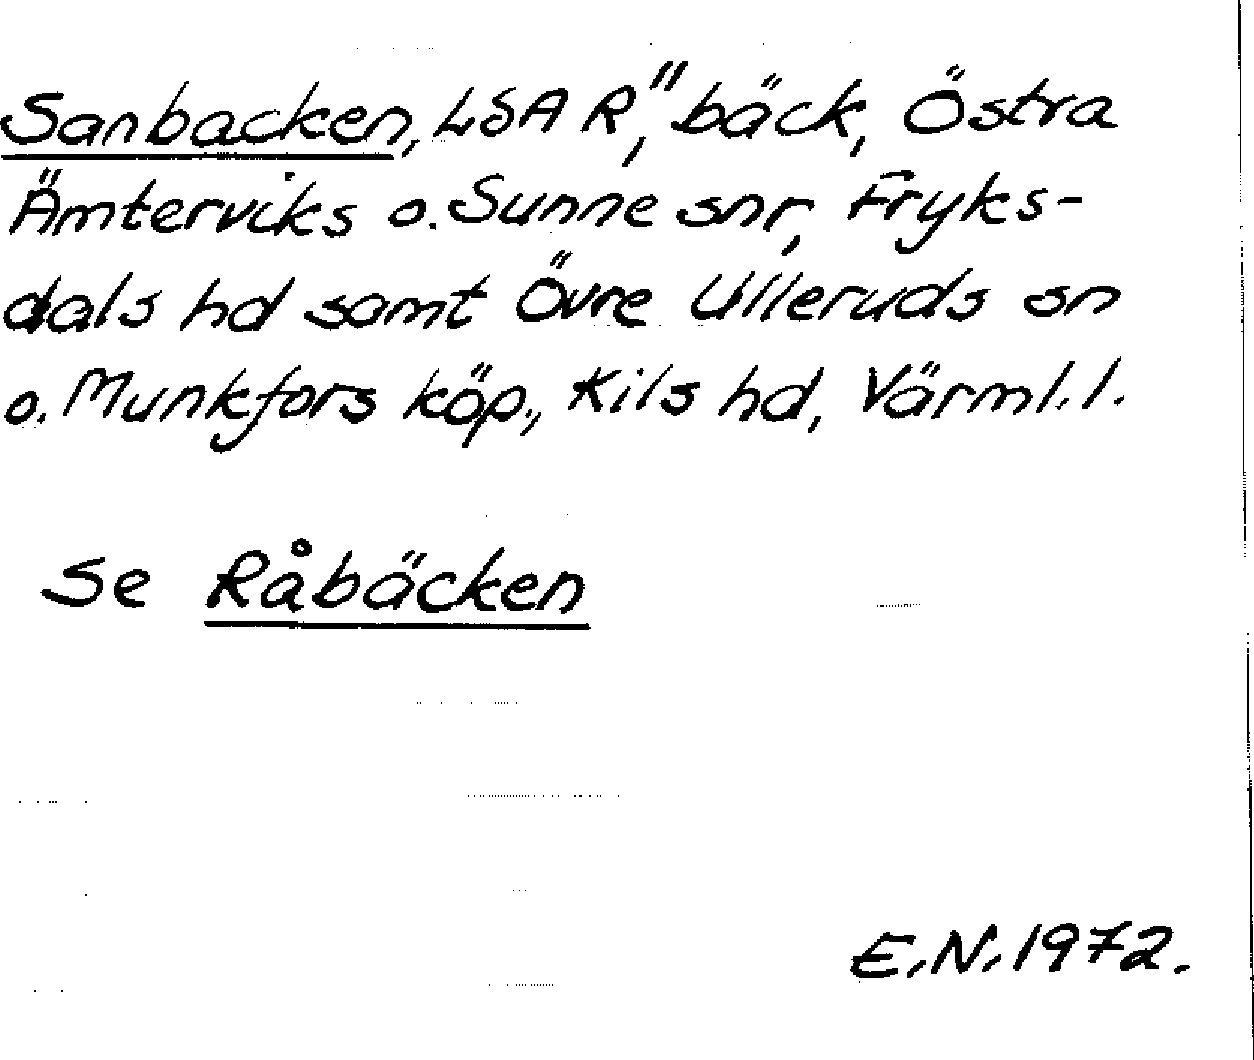 Sanbacken, LSA R," bäck, Östra
Ämterviks o. Sunne snr, Fryks-
dals hd samt Övre Ulleruds sn
o. Munkfors köp., Kils hd, Värml. l.
Se Råbäcken
E.N. 1972.